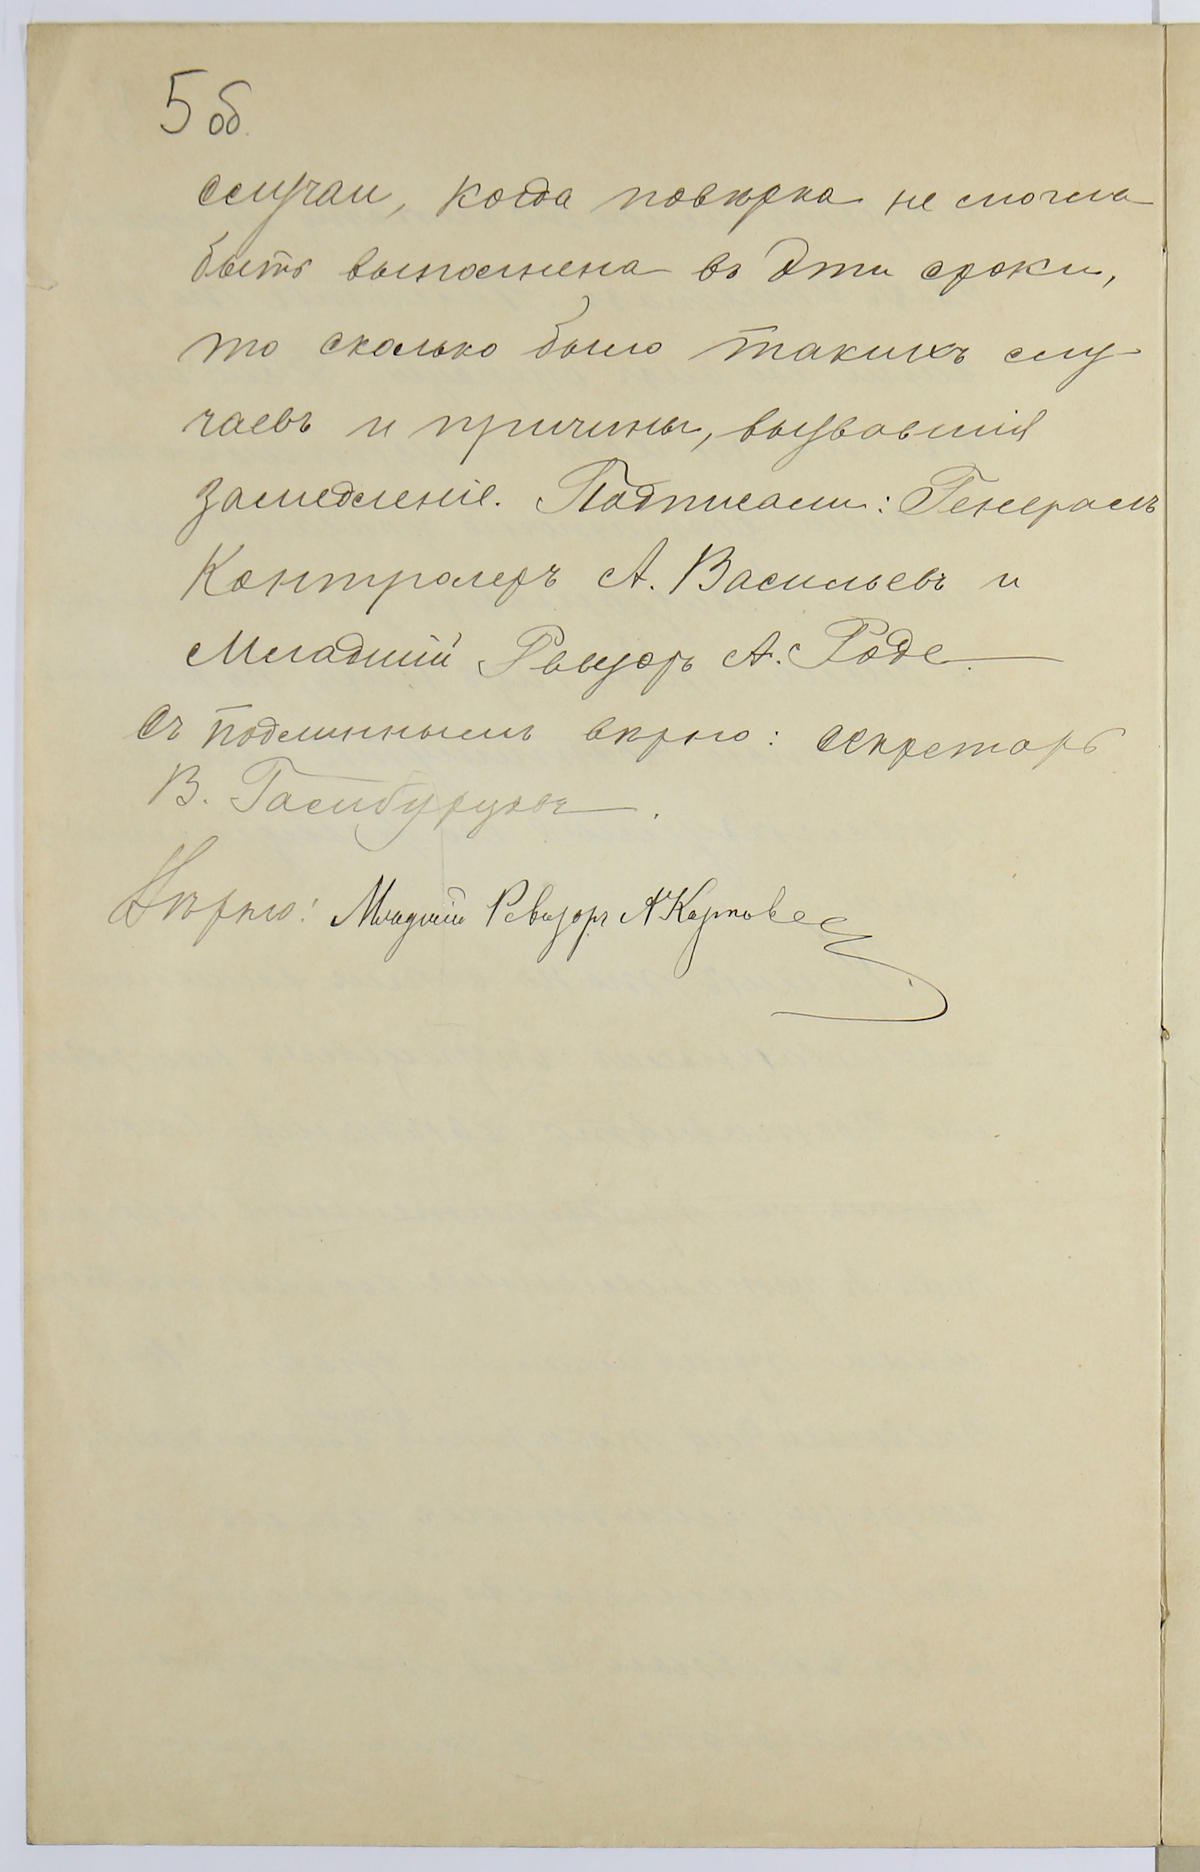 5 об.
случаи, когда повѣрка не могла
быть выполнена въ эти сроки,
то сколько было такихъ слу-
чаевъ и причины, вызвавшія
замедленіе. Подписали: Генералъ
Контролеръ А. Васильевъ и
Младшій Ревизоръ А. Роде.
Съ подлиннымъ вѣрно: секретарь
В.
Вѣрно: Младшій Ревизоръ А